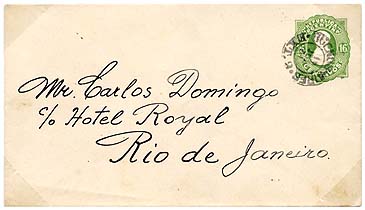 Mr. Carlos Domingo
c/o Hotel Royal
Rio de Janeiro.
16